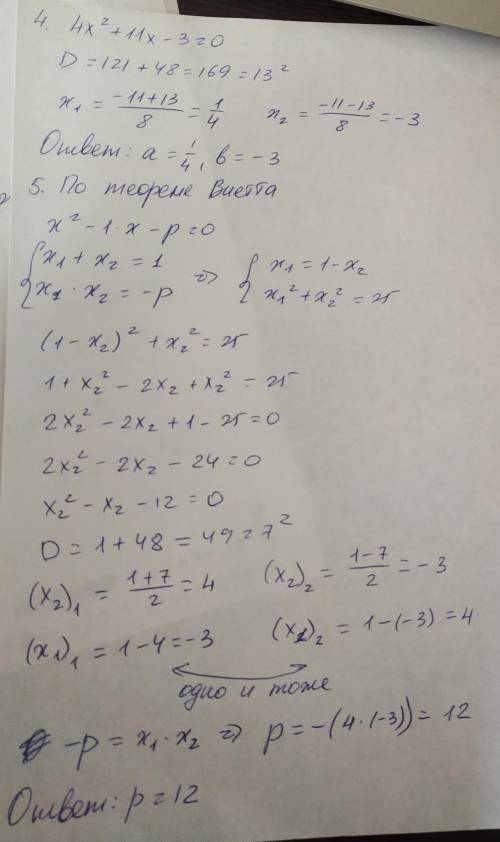 4. 4x² + 11x - 3 = 0
D = 121 + 48 = 169 = 13²
x₁ = (-11+13)/8 = 1/4   x₂ = (-11-13)/8 = -3
Ответ: a = 1/4, b = -3
5. По теореме Виетта
x² - 1·x - p = 0
{ x₁ + x₂ = 1   ⇒   { x₁ = 1 - x₂
x₁ · x₂ = -p   x₁² + x₂² = 25
(1 - x₂)² + x₂² = 25
1 + x₂² - 2x₂ + x₂² = 25
2x₂² - 2x₂ + 1 - 25 = 0
2x₂² - 2x₂ - 24 = 0
x₂² - x₂ - 12 = 0
D = 1 + 48 = 49 = 7²
(x₂)₁ = (1+7)/2 = 4   (x₂)₂ = (1-7)/2 = -3
(x₁)₁ = 1 - 4 = -3   (x₁)₂ = 1 - (-3) = 4
одно и тоже
-p = x₁ · x₂ ⇒ p = -(4·(-3)) = 12
Ответ: p = 12